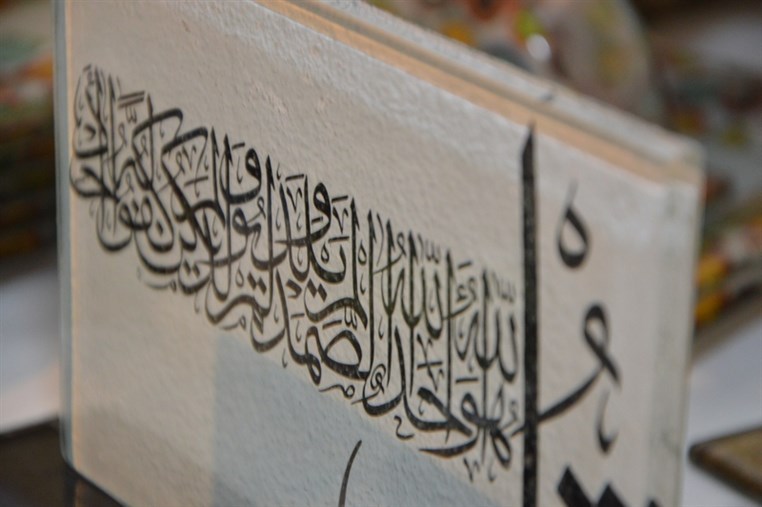 هو الله احد الله الصمد لم يلد ولم يولد ولم يكن له كفوا احد